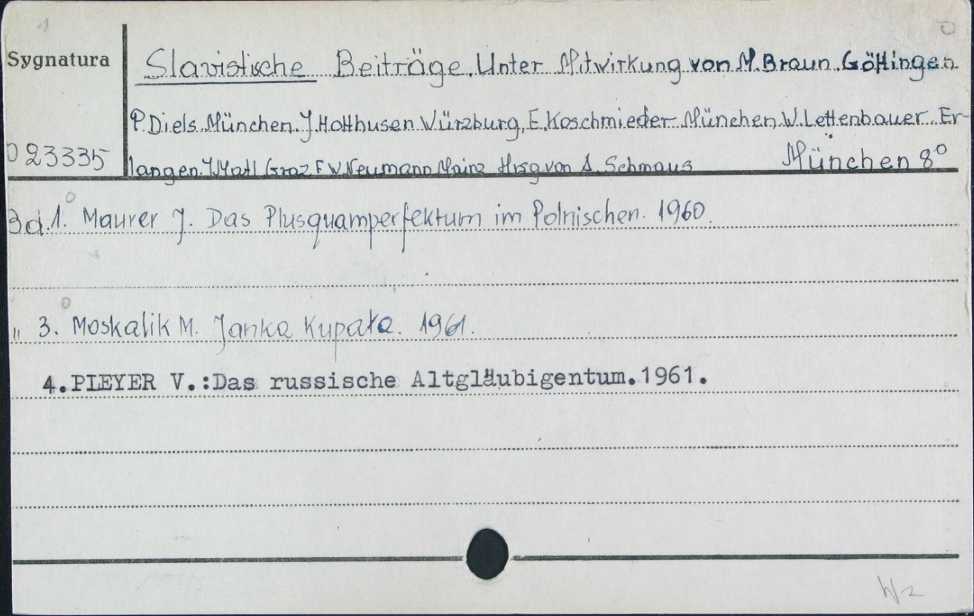 Sygnatura
Slavistische Beiträge. Unter Mitwirkung von M. Braun. Göttingen.
P. Diels. München. J. Holthusen Würzburg, E. Koschmieder München. W. Lettenbauer. Er-
D 23335
langen. J. Matl Graz F. W Neumann Mainz Hrsg von A. Schmaus München 8°
Bd. 1. Maurer J. Das Plusquamperfektum im Polnischen. 1960.
" 3. Moskalik M. Janka Kupała. 1961.
4. PLEYER V.:Das russische Altgläubigentum.1961.